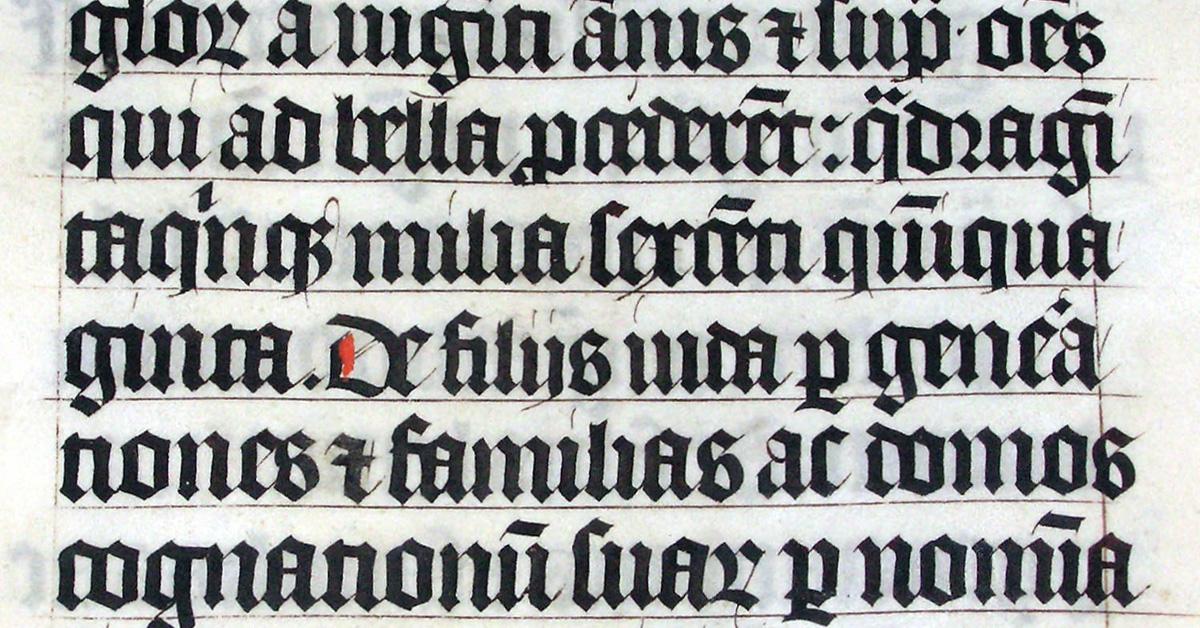 gloꝝ a uigīti ānis ⁊ sup̄ · oēs
qui ad bella ꝓcederēt : qᵃdragī
taqⁱnqꝫ milia sexcēti qūiqua
ginta . De filijs iuda ꝑ gen̄ea
tiones ⁊ familias ac domos
cognationū suaꝝ ꝑ nomīa